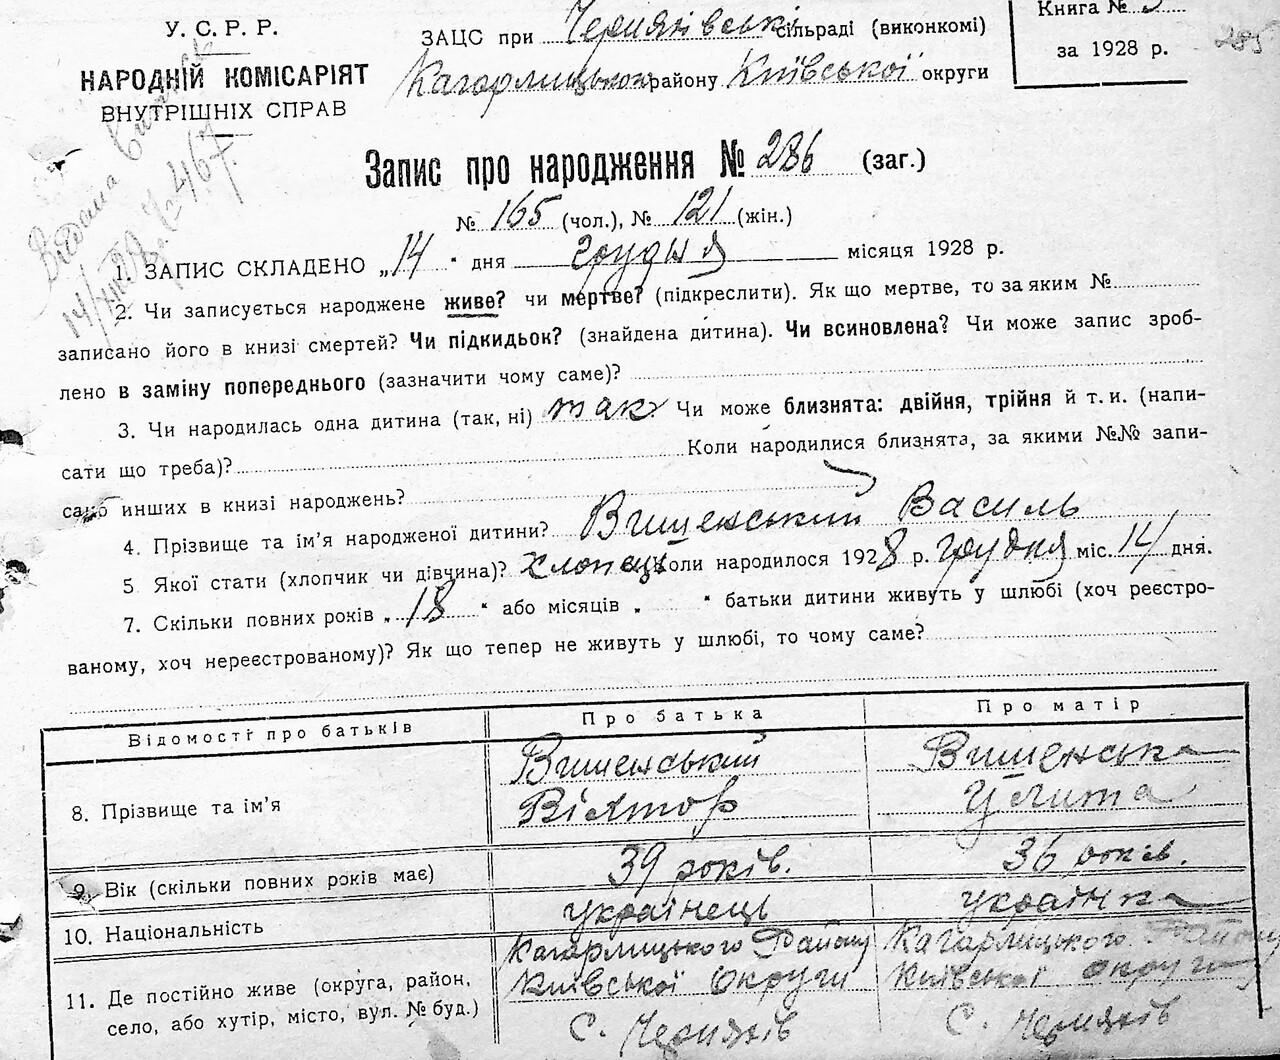 У. С. Р. Р.
НАРОДНІЙ КОМІСАРІЯТ
ВНУТРІШНІХ СПРАВ
ЗАЦС при Черняхівські сільраді (виконкомі)
Кагарлицького району Київської округи
Книга №
за 1928 р.
285
Відома
14/XII
Запис про народження № 286 (заг.)
№ 165 (чол.), № 121 (жін.)
1. ЗАПИС СКЛАДЕНО „14 “ дня грудня місяця 1928 р.
2. Чи записується народжене живе? чи мертве? (підкреслити). Як що мертве, то за яким №
записано його в книзі смертей? Чи підкидьок? (знайдена дитина). Чи всиновлена? Чи може запис зроб-
лено в заміну попереднього (зазначити чому саме)?
3. Чи народилась одна дитина (так, ні) так Чи може близнята: двійня, трійня й т. и. (напи-
сати що треба)? Коли народилися близнята, за якими №№ запи-
сано инших в книзі народжень?
4. Прізвище та ім’я народженої дитини? Вишенський Василь
5 Якої стати (хлопчик чи дівчина)? хлопець Коли народилося 1928 р. грудня міс. 14 дня.
7. Скільки повних років „ 18 “ або місяців „ “ батьки дитини живуть у шлюбі (хоч реєстро-
ваному, хоч нереєстрованому)? Як що тепер не живуть у шлюбі, то чому саме?
Відомості про батьків Про батька Про матір
8. Прізвище та ім’я Вишенський Віктор Вишенська Улита
9. Вік (скільки повних років має) 39 років. 36 років.
10. Національність українець українка
11. Де постійно живе (округа, район, Кагарлицького Району Кагарлицького Району
село, або хутір, місто, вул. № буд.) Київської Округи Київської округи
С. Черняхів С. Черняхів